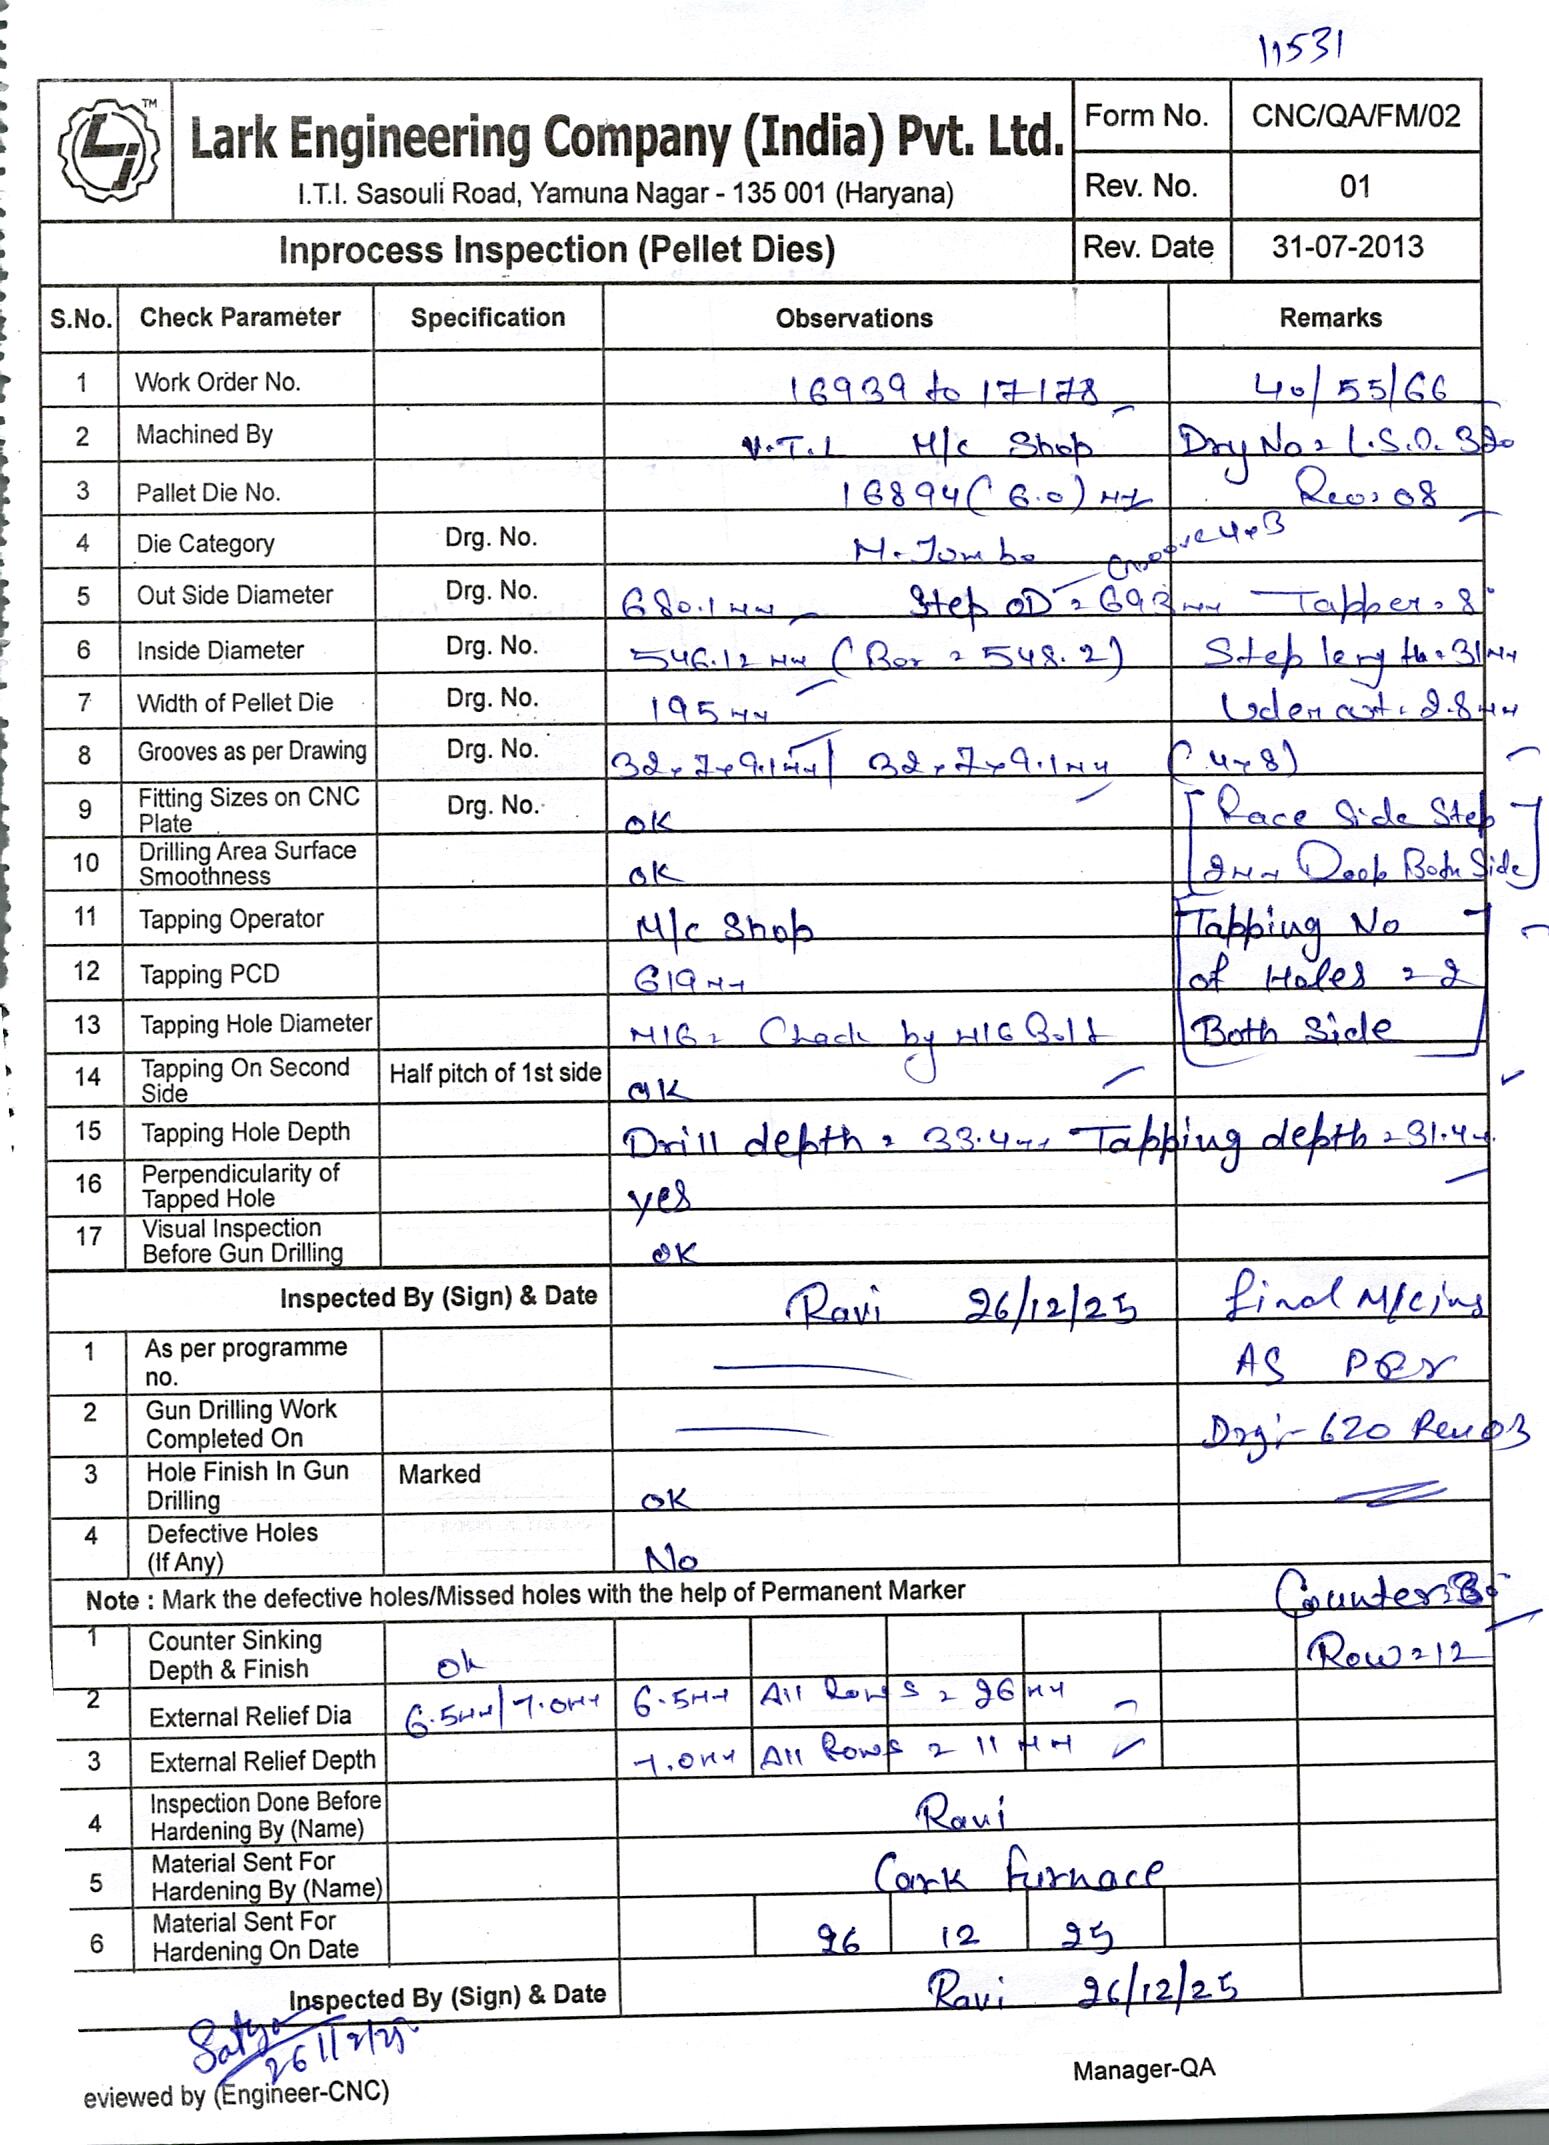 11531
LJ TM
Lark Engineering Company (India) Pvt. Ltd.
I.T.I. Sasouli Road, Yamuna Nagar - 135 001 (Haryana)
Form No. CNC/QA/FM/02
Rev. No. 01
Inprocess Inspection (Pellet Dies) Rev. Date 31-07-2013
S.No. Check Parameter Specification Observations Remarks
1 Work Order No. 16939 to 17178 40/55/66
2 Machined By V.T.L M/c Shop Drg No = L.S.O. 320
3 Pallet Die No. 16894 (6.0) Rev: 08
4 Die Category Drg. No. M. Jombo Groove 4x3
5 Out Side Diameter Drg. No. 680.1 mm Step OD = 693 mm Tapper = 8°
6 Inside Diameter Drg. No. 546.12 mm (Bor = 548.2) Step length = 31 mm
7 Width of Pellet Die Drg. No. 195 mm Uder cut = 2.8 mm
8 Grooves as per Drawing Drg. No. 32x7x9.1 mm / 32x7x9.1 mm (4x8)
9 Fitting Sizes on CNC Plate Drg. No. OK [Race Side Step
10 Drilling Area Surface Smoothness OK 2mm Deep Both Side]
11 Tapping Operator M/c Shop [Tapping No
12 Tapping PCD 619 mm of Holes = 2
13 Tapping Hole Diameter M16 = Check by M16 Bolt Both Side]
14 Tapping On Second Side Half pitch of 1st side OK
15 Tapping Hole Depth Drill depth = 33.4 mm Tapping depth = 31.4 mm
16 Perpendicularity of Tapped Hole yes
17 Visual Inspection Before Gun Drilling OK
Inspected By (Sign) & Date Ravi 26/12/25 final M/cing
1 As per programme no. AS Per
2 Gun Drilling Work Completed On Drg:- 620 Rev 03
3 Hole Finish In Gun Drilling Marked OK
4 Defective Holes (If Any) No
Note : Mark the defective holes/Missed holes with the help of Permanent Marker Counter
1 Counter Sinking Depth & Finish Ok Row = 12
2 External Relief Dia 6.5mm/7.0mm 6.5mm All Rows = 26 mm
3 External Relief Depth 7.0mm All Rows = 11 mm
4 Inspection Done Before Hardening By (Name) Ravi
5 Material Sent For Hardening By (Name) Lark furnace
6 Material Sent For Hardening On Date 26 12 25
Inspected By (Sign) & Date Ravi 26/12/25
Satya
26/12/25
eviewed by (Engineer-CNC) Manager-QA